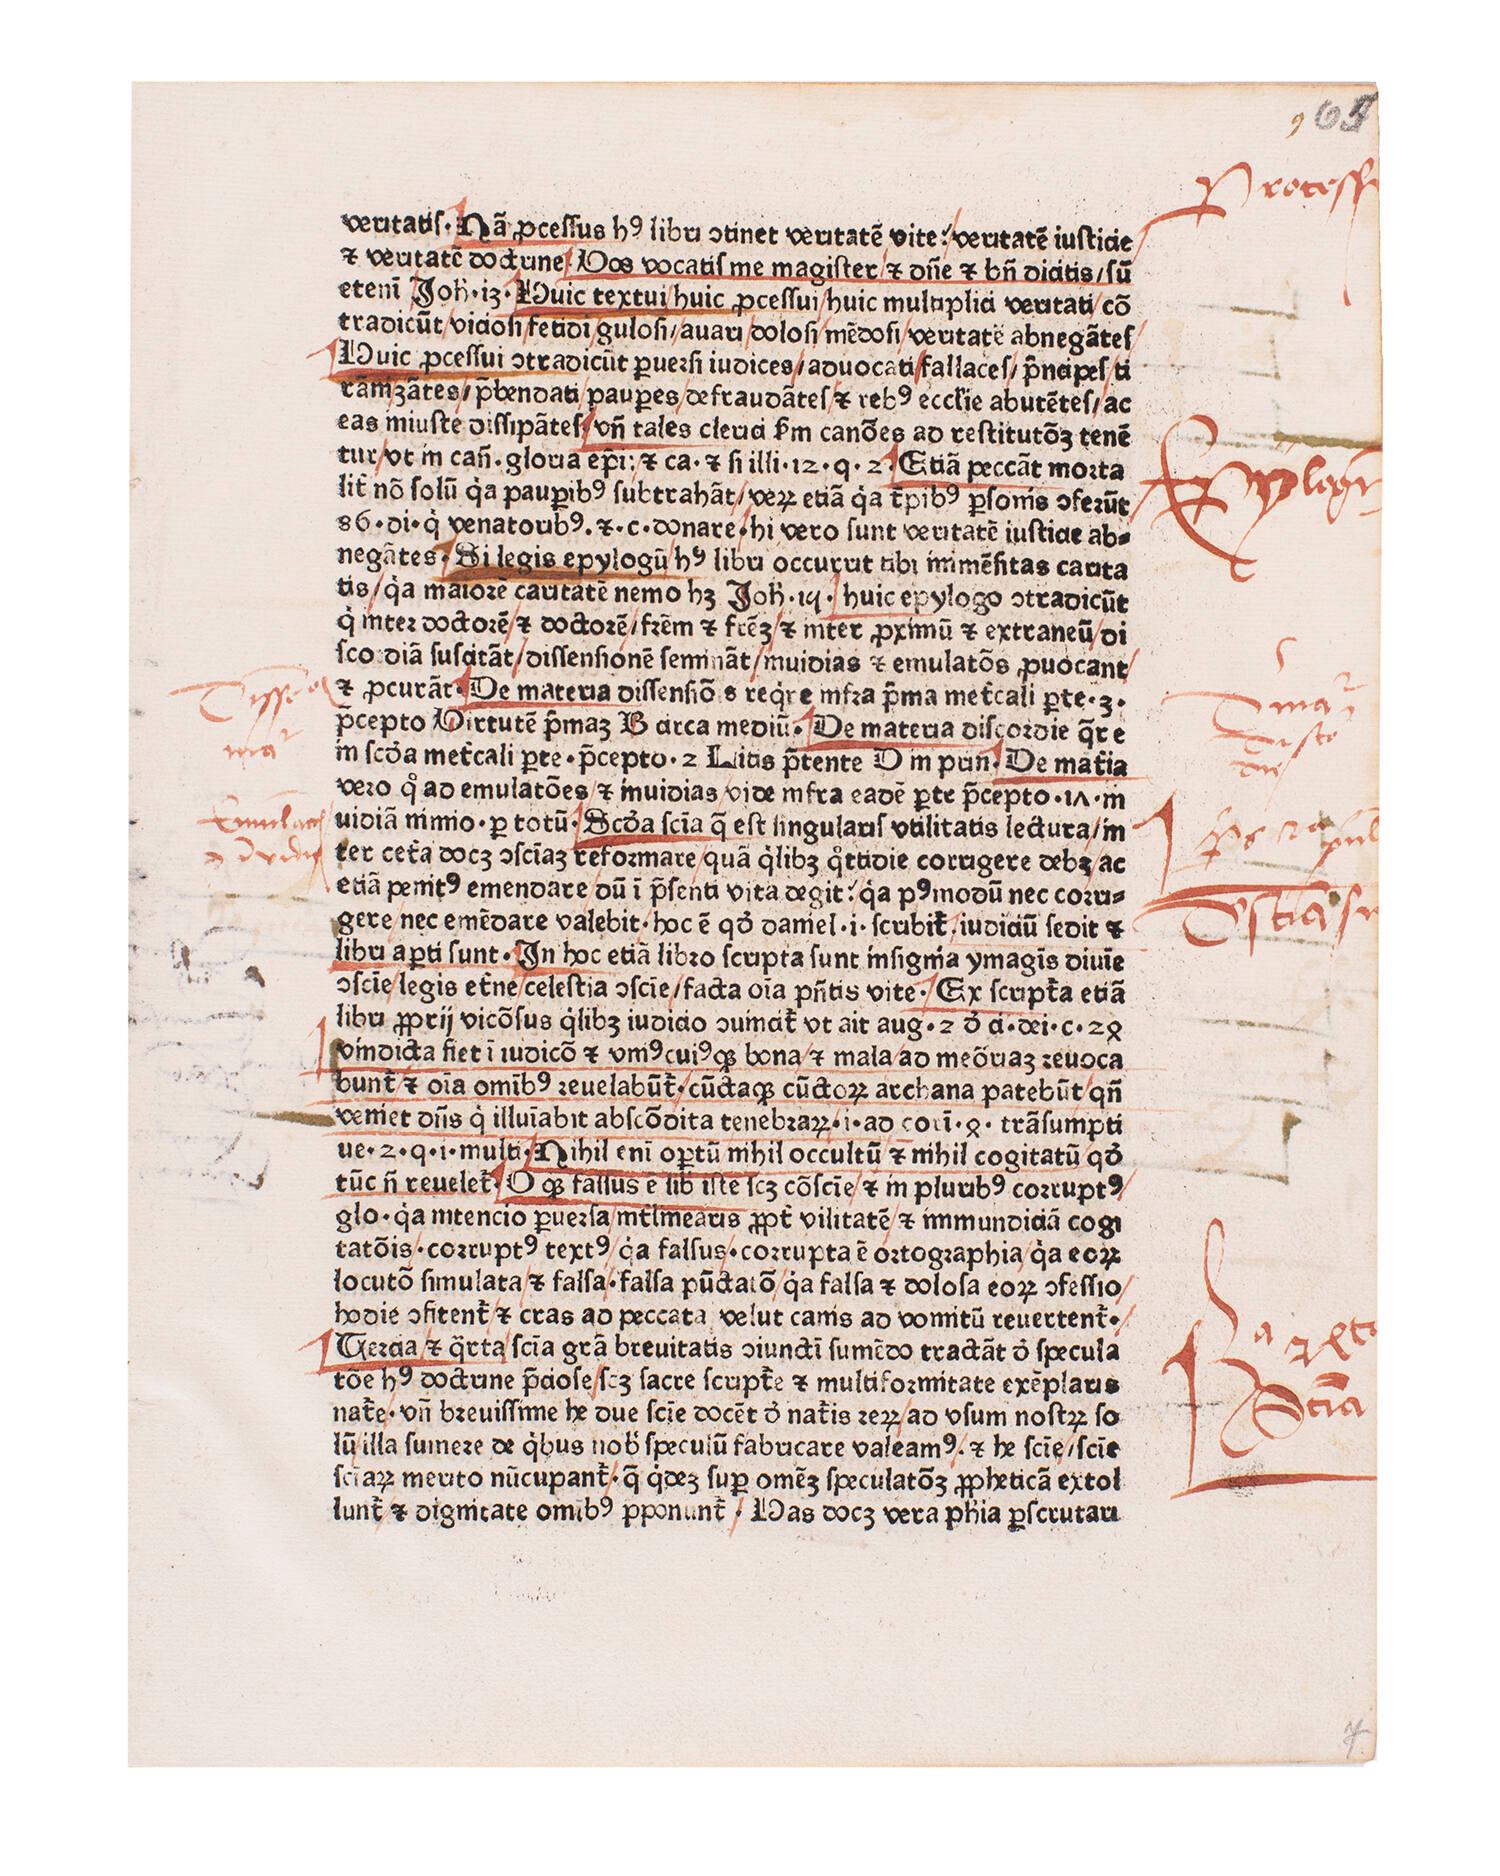 veritatis. Nā ꝓcessus hꝰ libri ↄtinet veritatē vite: veritatē iusticie
⁊ veritatē doctrine. Vos vocatis me magister ⁊ dn̄e ⁊ bn̄ dicitis / sū
etenī Joh̄. 13. Huic textui / huic ꝓcessui / huic multiplici veritati / cō
tradicūt / viciosi / fetidi / gulosi / auari / dolosi / mēdosi / veritatē abnegātes
Huic ꝓcessui ↄtradicūt ꝑuersi iudices / aduocati / fallaces / p̄ncipes / ti
rānizātes / p̄bendati / pauꝑes / defraudātes ⁊ rebꝰ eccl̄ie abutētes / ac
eas iniuste dissipātes / vn̄ tales clerici ẜm canōes ad restitutōꝫ tenē
tur / vt in can̄. gloria ep̄i: ⁊ ca. ⁊ si illi. 12. q. 2. Etiā peccāt morta
lit̄ nō solū q̇a pauꝑibꝰ subtrahāt / veꝝ etiā q̇a t̄pibꝰ ꝑsonis ↄferūt
86. di. q̇ venatoribꝰ. ⁊. c. donare. hi vero sunt veritatē iusticie ab⸗
negātes. Si legis epylogū hꝰ libri occurrit tibi immēsitas carita
tis / q̇a maiorē caritatē nemo hꝫ Joh̄. 15. huic epylogo ↄtradicūt
q̇ inter doctorē ⁊ doctorē / frēm ⁊ frēꝫ / ⁊ inter ꝓximū ⁊ extraneū / di
scordiā suscitāt / dissensionē semināt / inuidias ⁊ emulatōs ꝓuocant
⁊ ꝓcurāt. De materia dissensiōis req̇re infra p̄ma met̄cali ꝑte. 3.
p̄cepto Virtutē p̄maꝫ B circa mediū. De materia discordie q̄re
in scd̄a met̄cali ꝑte. p̄cepto. 2 Litis p̄tente D in prin. De mat̄ia
vero qͦ ad emulatōes ⁊ inuidias vide infra eadē ꝑte p̄cepto. 17. in
uidiā nimio. ꝑ totū. Scd̄a scīa q̄ est singularis vtilitatis lectura / in
ter cet̄a docꝫ ↄscīaꝫ reformare / quā q̇libꝫ qͦtidie corrigere debꝫ ac
etiā penitꝰ emendare / dū ī p̄senti vita degit: q̇a pꝰmodū nec corri⸗
gere nec emēdare valebit. hoc ē qd̄ daniel. i. scribit̄ / iudiciū sedit ⁊
libri aꝑti sunt. In hoc etiā libro scripta sunt insignia ymagīs diuīe
ↄscīe / legis et̄ne / celestia ↄscīe / facta oīa pn̄tis vite. Ex script̄a etiā
libri ꝓprij viciōsus q̇libꝫ iudicio ↄuincit̄ vt ait aug. 2 d̄ ci. dei. c. 28
vindicta fiet ī iudicō ⁊ vniꝰcuiꝰqꝫ bona ⁊ mala / ad meōriaꝫ reuoca
bunt̄ ⁊ oīa omībꝰ reuelabūt̄. cūctaqꝫ cūctoꝝ archana patebūt / qn̄
veniet dn̄s q̇ illuīabit abscōdita tenebraꝝ. i. ad cori. 4. trāsumpti
ue. 2. q. 1. multi. Nihil enī oꝑtū nihil occultū ⁊ nihil cogitatū qd̄
tūc n̄ reuelet̄. O qꝫ falsus ē lib̄ iste scꝫ cōscīe / ⁊ in pluribꝰ corruptꝰ
glo. q̇a intencio ꝑuersa / int̄linearis ꝓpt̄ vilitatē ⁊ immundiciā cogi
tatōis. corruptꝰ textꝰ / q̇a falsus. corrupta ē ortographia / q̇a eoꝝ
locutō simulata ⁊ falsa. falsa pūctatō / q̇a falsa ⁊ dolosa eoꝝ ↄfessio /
hodie ↄfitent̄ ⁊ cras ad peccata velut canis ad vomitū reuertent̄.
Tercia ⁊ q̄rta scīa grā breuitatis ↄiunctī sumēdo tractāt d̄ specula
tōe hꝰ doctrine p̄ciose / scꝫ sacre script̄e ⁊ multiformitate exēplaris
nat̄e. vn̄ breuissime he due scīe docēt d̄ nat̄is reꝝ / ad vsum nostꝝ so
lū illa sumere de q̇bus nob̄ speculū fabricare valeamꝰ. ⁊ he scīe / scīe
scīaꝝ merito nūcupant̄. q̄ q̇deꝫ suꝑ omēꝫ speculatōꝫ ꝓpheticā extol
lunt̄ ⁊ dignitate omībꝰ p̄ponunt̄. Has docꝫ vera phīa ꝑscrutari